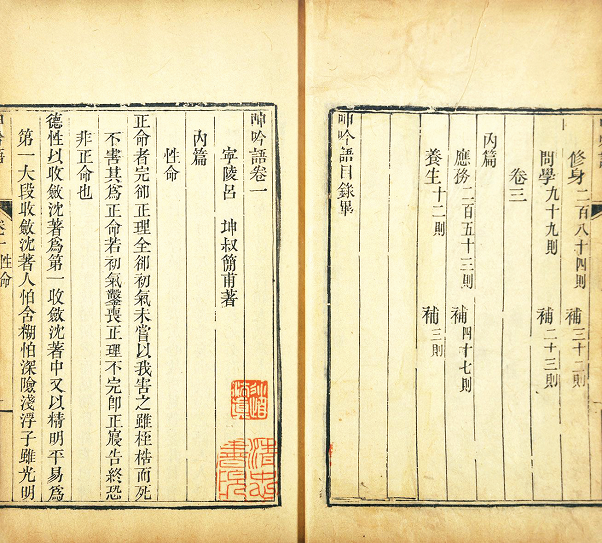 修身二百八十四則 補三十二則
問學九十九則 補二十三則
卷三
內篇
應務二百五十三則 補四十七則
養生十二則 補三則
呻吟語目錄畢
呻吟語卷一
寧陵呂 坤叔簡甫著
內篇
性命
正命者完卻正理全卻初氣未嘗以我害之雖桎梏而死
不害其爲正命若初氣鑿喪正理不完卽正寢告終恐
非正命也
德性以收斂沈著爲第一收斂沈著中又以精明平易爲
第一大段收斂沈著人怕含糊怕深險淺浮子雖光明
卷一 性命